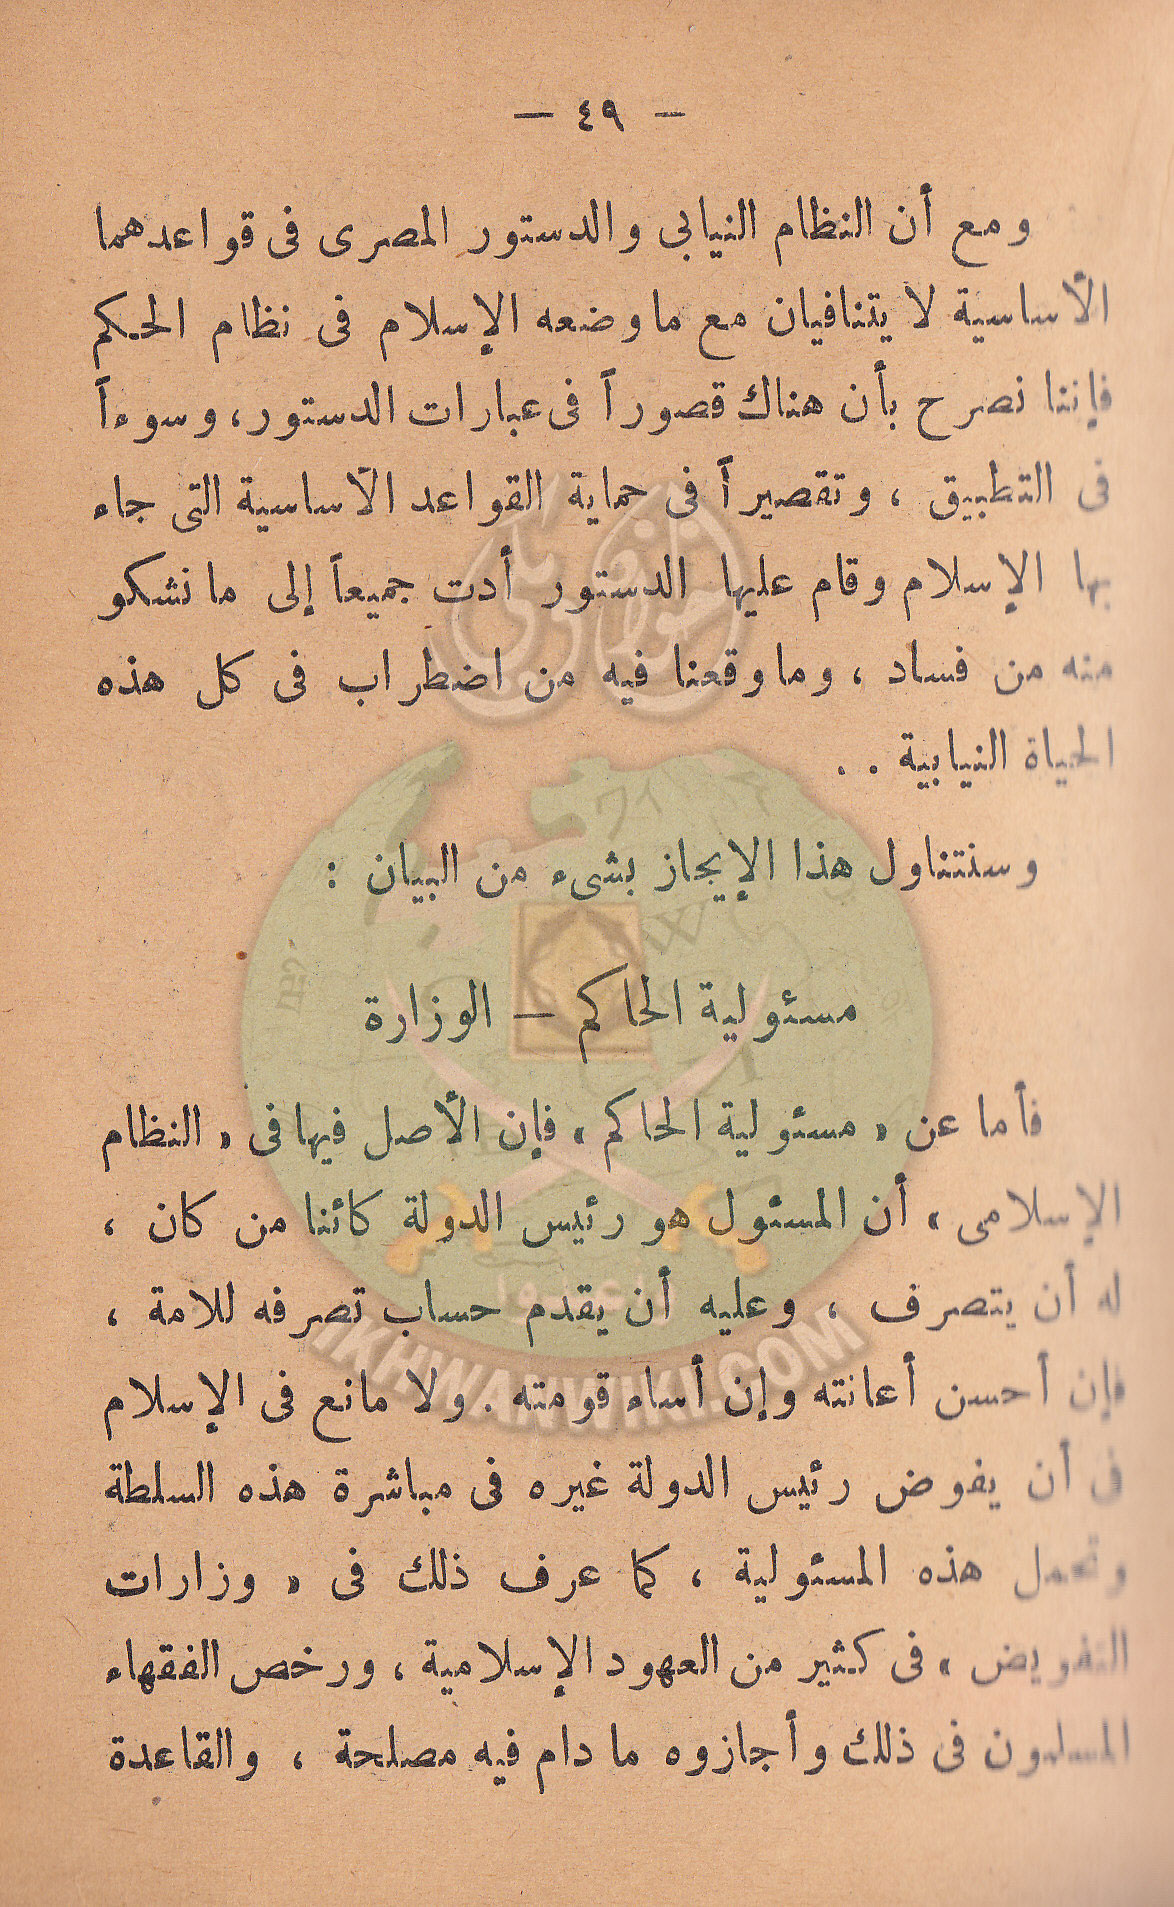 — ٤٩ —
ومع أن النظام النيابى والدستور المصرى فى قواعدهما
الأساسية لا يتنافيان مع ماوضعه الإسلام فى نظام الحكم
فإننا نصرح بأن هناك قصوراً فى عبارات الدستور، وسوءاً
فى التطبيق ، وتقصيراً فى حماية القواعد الأساسية التى جاء
بها الإسلام وقام عليها الدستور أدت جميعاً إلى مانشكو
منه من فساد ، وماوقعنا فيه من اضطراب فى كل هذه
الحياة النيابية . .
وسنتناول هذا الإيجاز بشىء من البيان :
مسئولية الحاكم — الوزارة
فأما عن « مسئولية الحاكم » فإن الأصل فيها فى « النظام
الإسلامى » أن المسئول هو رئيس الدولة كائنا من كان ،
له أن يتصرف ، وعليه أن يقدم حساب تصرفه للامة ،
فإن أحسن أعانته وإن أساء قومته . ولا مانع فى الإسلام
فى أن يفوض رئيس الدولة غيره فى مباشرة هذه السلطة
وتحمل هذه المسئولية ، كما عرف ذلك فى « وزارات
التفويض » فى كثير من العهود الإسلامية ، ورخص الفقهاء
المسلمون فى ذلك وأجازوه مادام فيه مصلحة ، والقاعدة
وأعدوا
IKHWANWIKI.COM